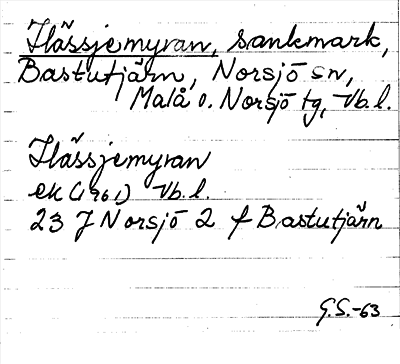 Flässjemyran, sankmark,
Bastutjärn, Norsjö sn,
Malå o. Norsjö tg, Vb.l.
Flässjemyran
ek (1961) Vb.l.
23 J Norsjö 2 f Bastutjärn
G.S.-63